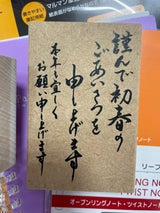 謹んで初春の
ごあいさつを
申し上げます
本年も宜しく
お願い申し上げます
書きやすい
筆記用紙
マルマン
リーフ
オープンリングノート・ツイストノート
TWIST NO